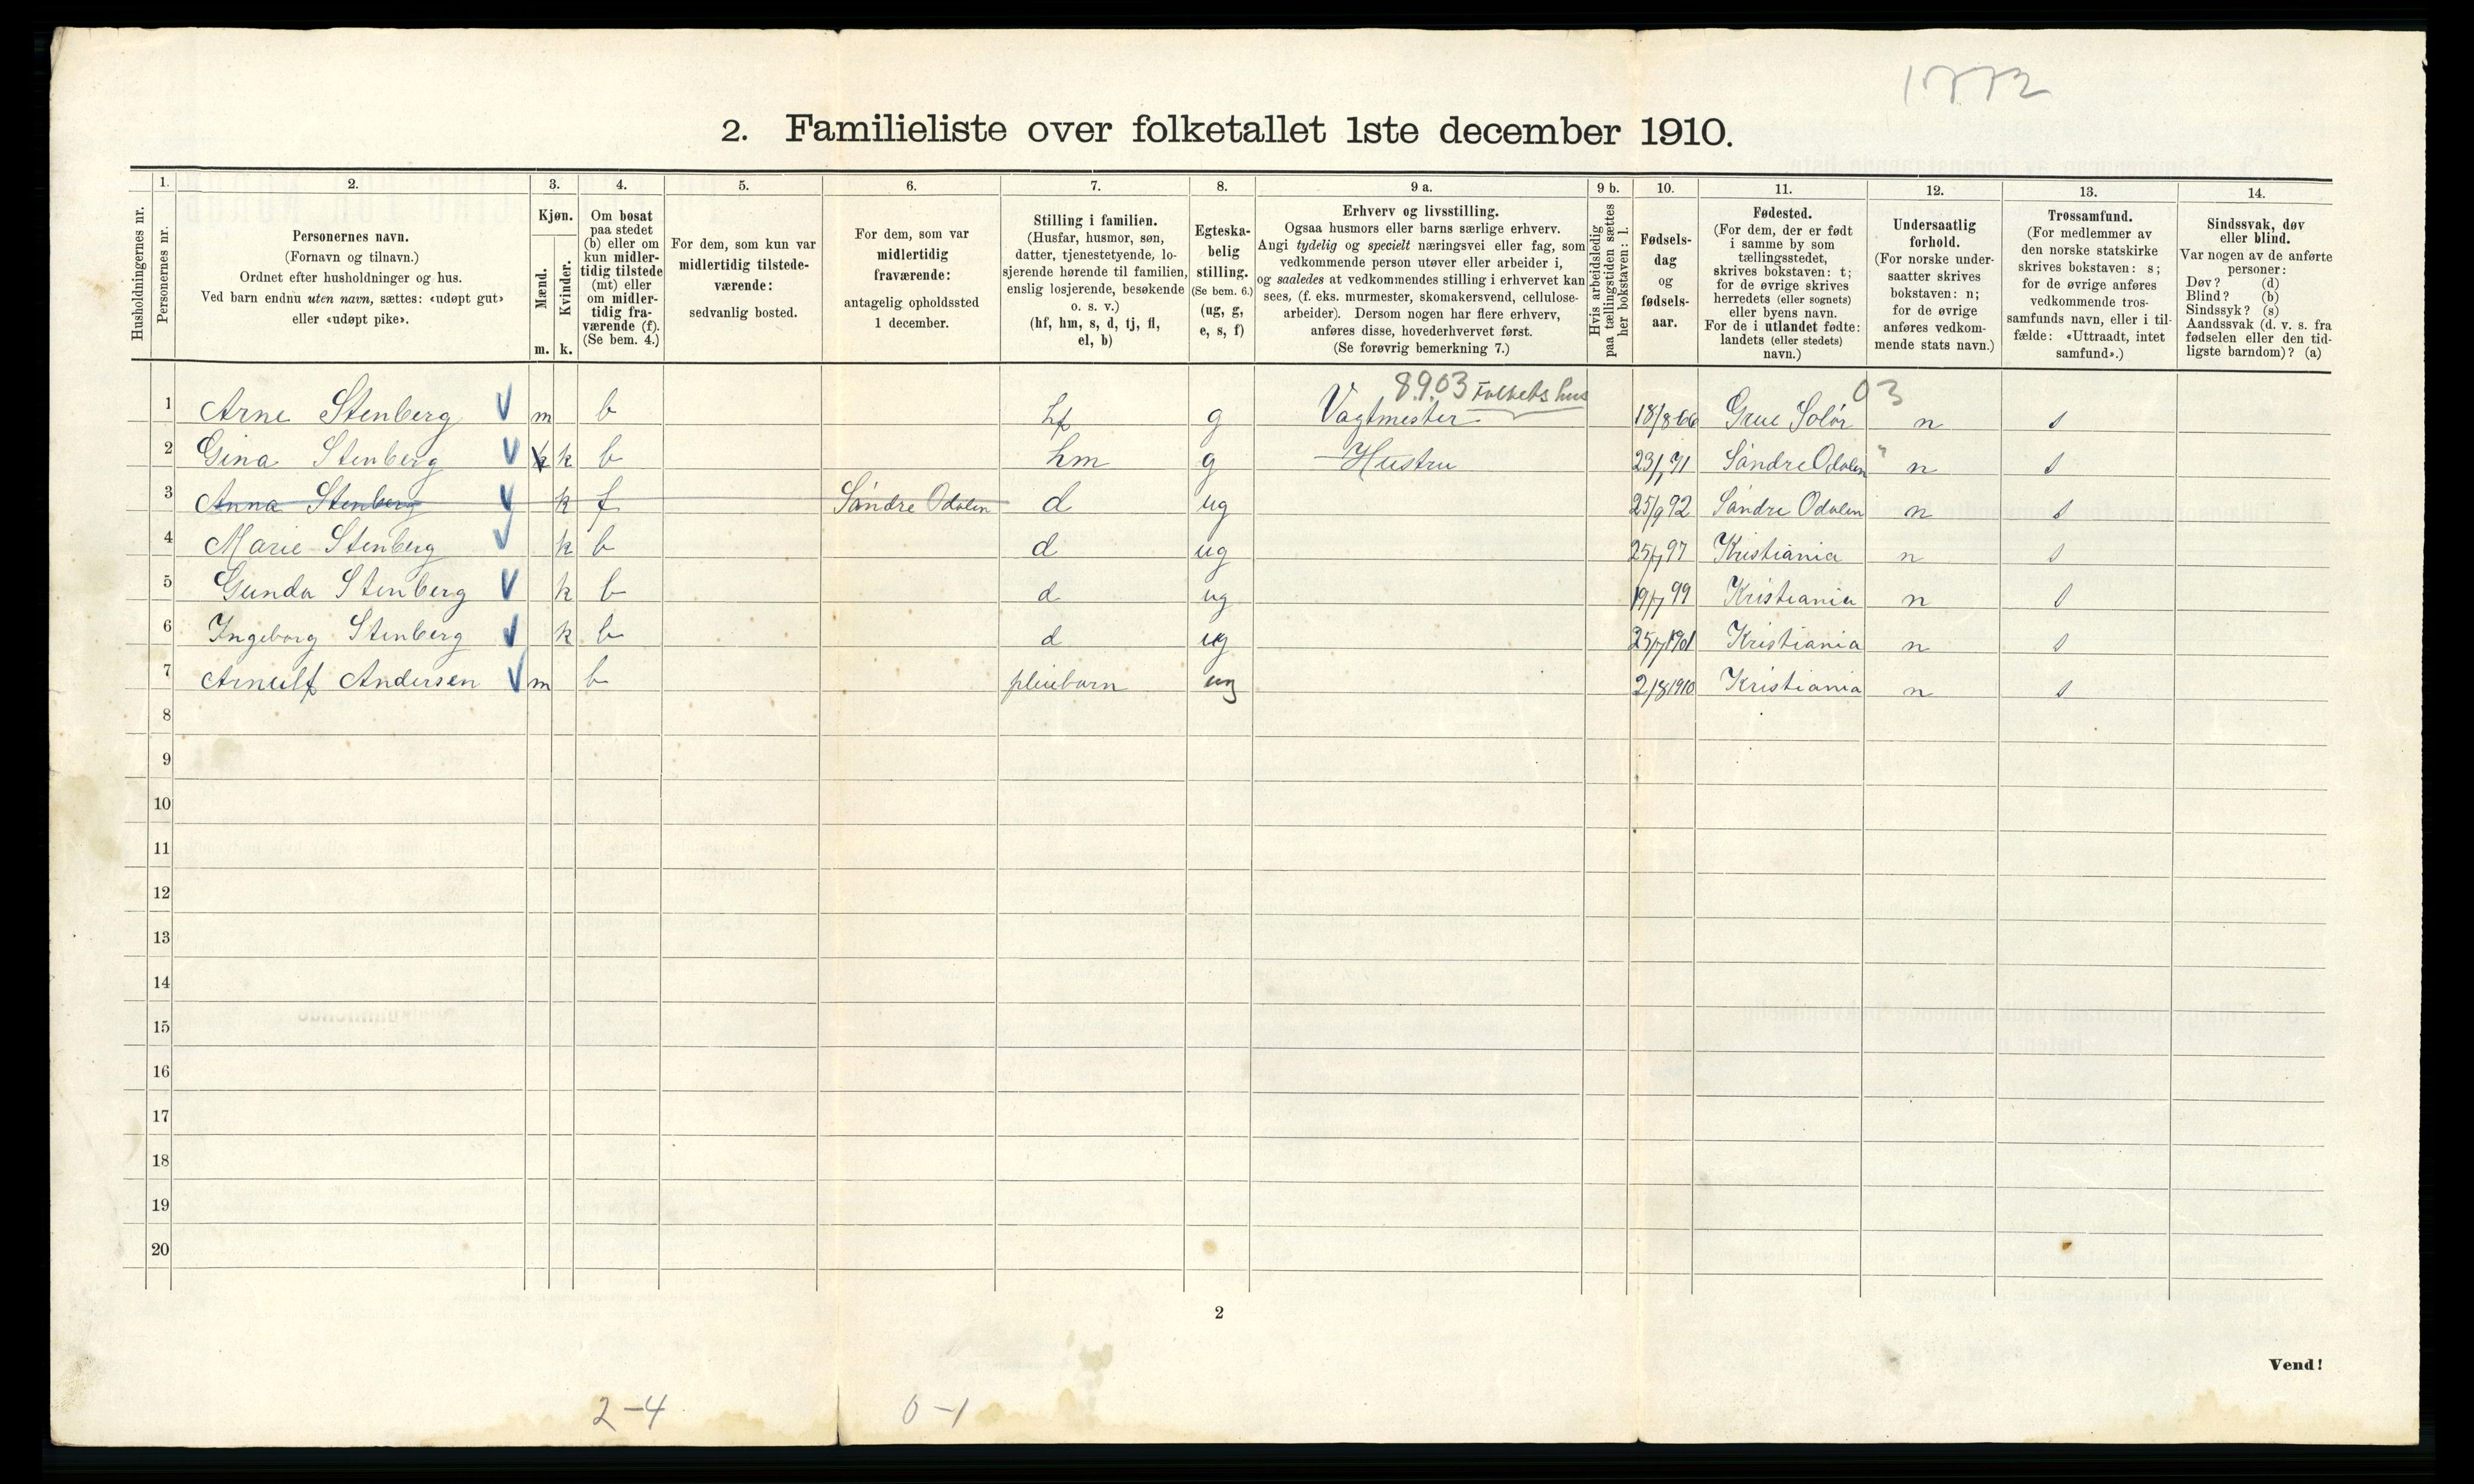 1772
2. Familieliste over folketallet 1ste december 1910.
Husholdningernes nr.
1. Personernes nr.
2. Personernes navn.
(Fornavn og tilnavn.)
Ordnet efter husholdninger og hus.
Ved barn endnu uten navn, sættes: «udøpt gut»
eller «udøpt pike».
3. Kjøn.
Mænd. m.
Kvinder. k.
4. Om bosat
paa stedet
(b) eller om
kun midler-
tidig tilstede
(mt) eller
om midler-
tidig fra-
værende (f).
(Se bem. 4.)
5. For dem, som kun var
midlertidig tilstede-
værende:
sedvanlig bosted.
6. For dem, som var
midlertidig
fraværende:
antagelig opholdssted
1 december.
7. Stilling i familien.
(Husfar, husmor, søn,
datter, tjenestetyende, lo-
sjerende hørende til familien,
enslig losjerende, besøkende
o. s. v.)
(hf, hm, s, d, tj, fl,
el, b)
8. Egteska-
belig
stilling.
(Se bem. 6.)
(ug, g,
e, s, f)
9 a. Erhverv og livsstilling.
Ogsaa husmors eller barns særlige erhverv.
Angi tydelig og specielt næringsvei eller fag, som
vedkommende person utøver eller arbeider i,
og saaledes at vedkommendes stilling i erhvervet kan
sees, (f. eks. murmester, skomakersvend, cellulose-
arbeider). Dersom nogen har flere erhverv,
anføres disse, hovederhvervet først.
(Se forøvrig bemerkning 7.)
9 b. Hvis arbeidsledig
paa tællingstiden sættes
her bokstaven: l.
10. Fødsels-
dag
og
fødsels-
aar.
11. Fødested.
(For dem, der er født
i samme by som
tællingsstedet,
skrives bokstaven: t;
for de øvrige skrives
herredets (eller sognets)
eller byens navn.
For de i utlandet fødte:
landets (eller stedets)
navn.)
12. Undersaatlig
forhold.
(For norske under-
saatter skrives
bokstaven: n;
for de øvrige
anføres vedkom-
mende stats navn.)
13. Trossamfund.
(For medlemmer av
den norske statskirke
skrives bokstaven: s;
for de øvrige anføres
vedkommende tros-
samfunds navn, eller i til-
fælde: «Uttraadt, intet
samfund».)
14. Sindssvak, døv
eller blind.
Var nogen av de anførte
personer:
Døv? (d)
Blind? (b)
Sindssyk? (s)
Aandssvak (d. v. s. fra
fødselen eller den tid-
ligste barndom)? (a)
8.9.03 Folkets hus 03
1 Arne Stenberg V m b hf g Vagtmester 18/8 66 Grue Solør n s
2 Gina Stenberg V k k b hm g Hustru 23/7 71 Søndre Odalen " n s
3 Anna Stenberg V k f Søndre Odalen d ug 25/9 92 Søndre Odalen n s
4 Marie Stenberg V k b d ug 25/7 97 Kristiania n s
5 Gunda Stenberg V k b d ug 19/7 99 Kristiania n s
6 Ingeborg Stenberg V k b d ug 25/7 1901 Kristiania n s
7 Arnulf Andersen V m b pleiebarn ug 2/8 1910 Kristiania n s
8
9
10
11
12
13
14
15
16
17
18
19
20
2
Vend!
2-4 0-1